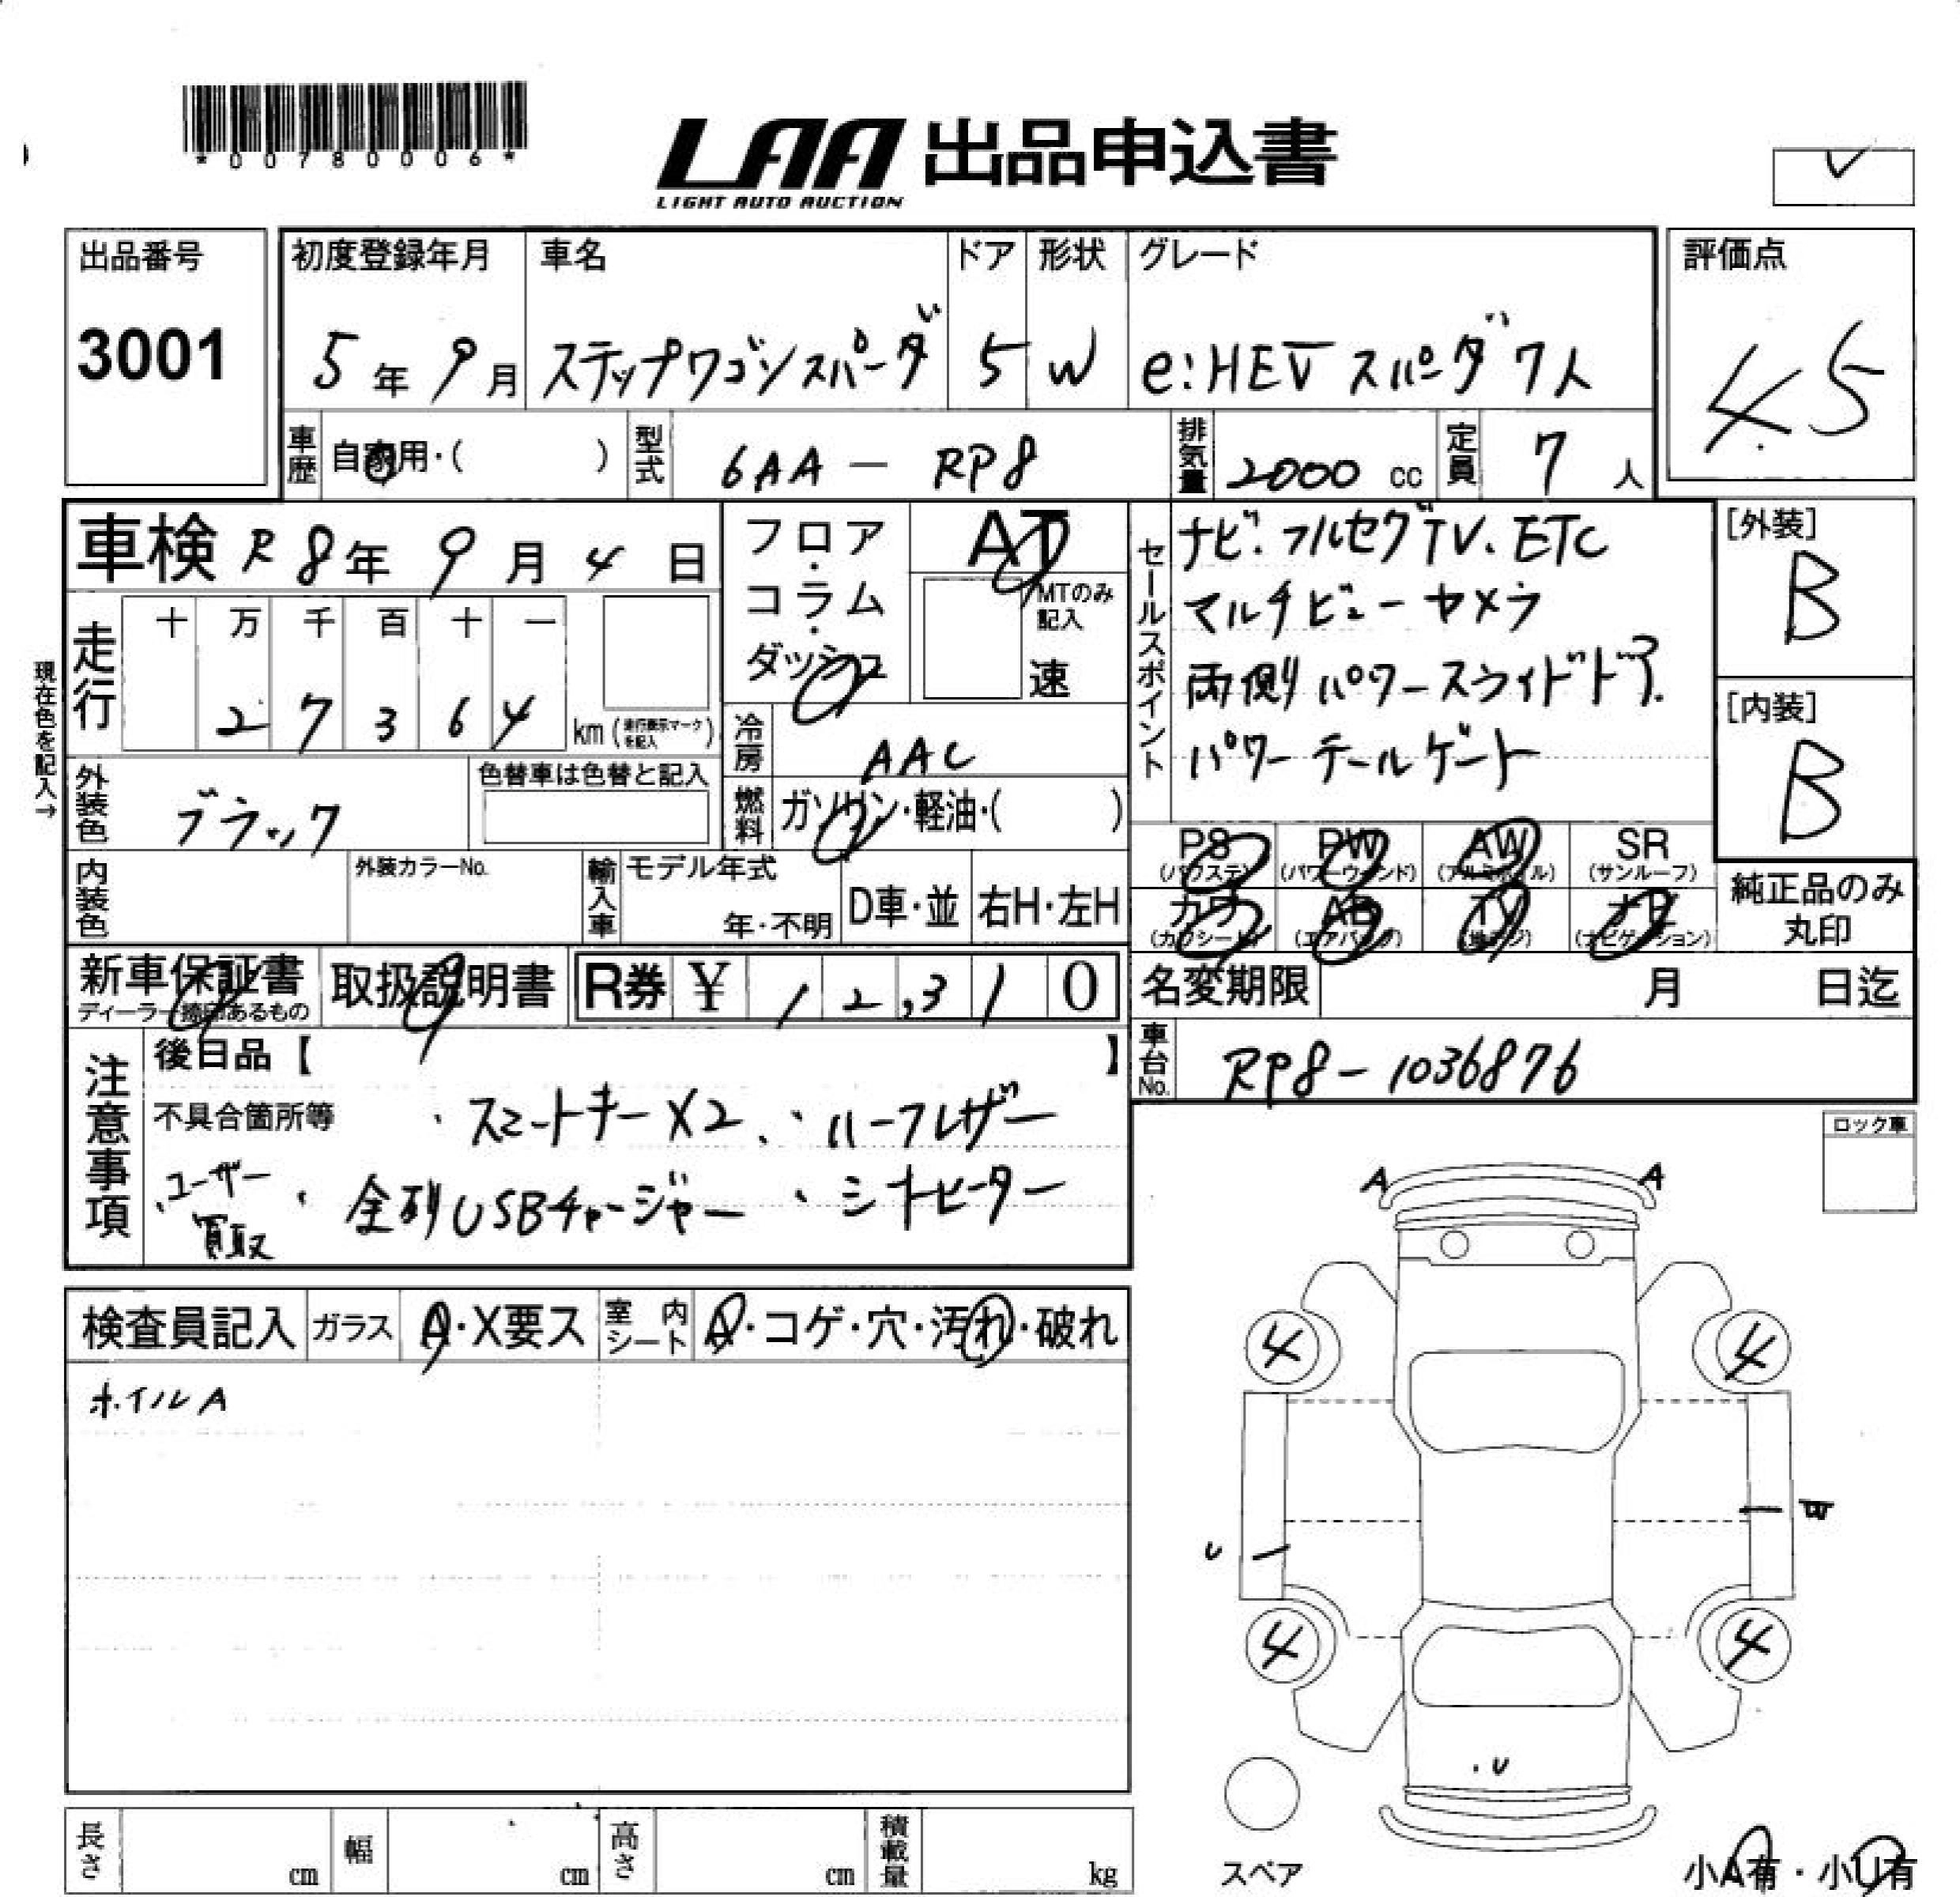 *00780006*
LAA 出品申込書
LIGHT AUTO AUCTION
出品番号
3001
初度登録年月
5年9月
車名
ステップワゴンスパーダ
ドア
5
形状
W
グレード
e:HEV スパーダ 7人
評価点
4.5
車歴
自家用・( )
型式
6AA-RP8
排気量
2000 cc
定員
7人
車検 R8年9月4日
フロア・コラム・ダッシュ
AT
MTのみ記入
速
セールスポイント
ナビ.フルセグTV.ETC
マルチビューカメラ
両側パワースライドドア.
パワーテールゲート
[外装]
B
[内装]
B
現在色を記入→
走行
十 万 千 百 十 一
2 7 3 6 4
km(走行表示マークを記入)
冷房
AAC
外装色
ブラック
色替車は色替と記入
燃料
ガソリン・軽油・( )
内装色
外装カラーNo.
輸入車
モデル年式
年・不明
D車・並
右H・左H
PS
(パワステ)
PW
(パワーウィンド)
AW
(アルミホイル)
SR
(サンルーフ)
カワ
(カワシート)
AB
(エアバック)
TV
(地デジ)
ナビ
(ナビゲーション)
純正品のみ
丸印
新車保証書
ディーラー捺印あるもの
取扱説明書
R券 ¥ 12,310
名変期限 月 日迄
車台No.
RP8-1036876
注意事項
後日品【 】
不具合箇所等
・スマートキーX2、・ハーフレザー
・ユーザー買取
・全列USBチャージャー ・シートヒーター
ロック車
検査員記入
ガラス
A・X要ス
室内シート
A・コゲ・穴・汚れ・破れ
ホイルA
A A
4 4
U
4 4
.U
スペア
小A有・小U有
長さ cm
幅 cm
高さ cm
積載量 kg